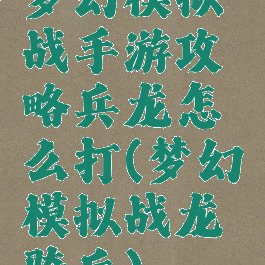 梦幻模拟
战手游攻
略兵龙怎
么打(梦幻
模拟战龙
骑兵)